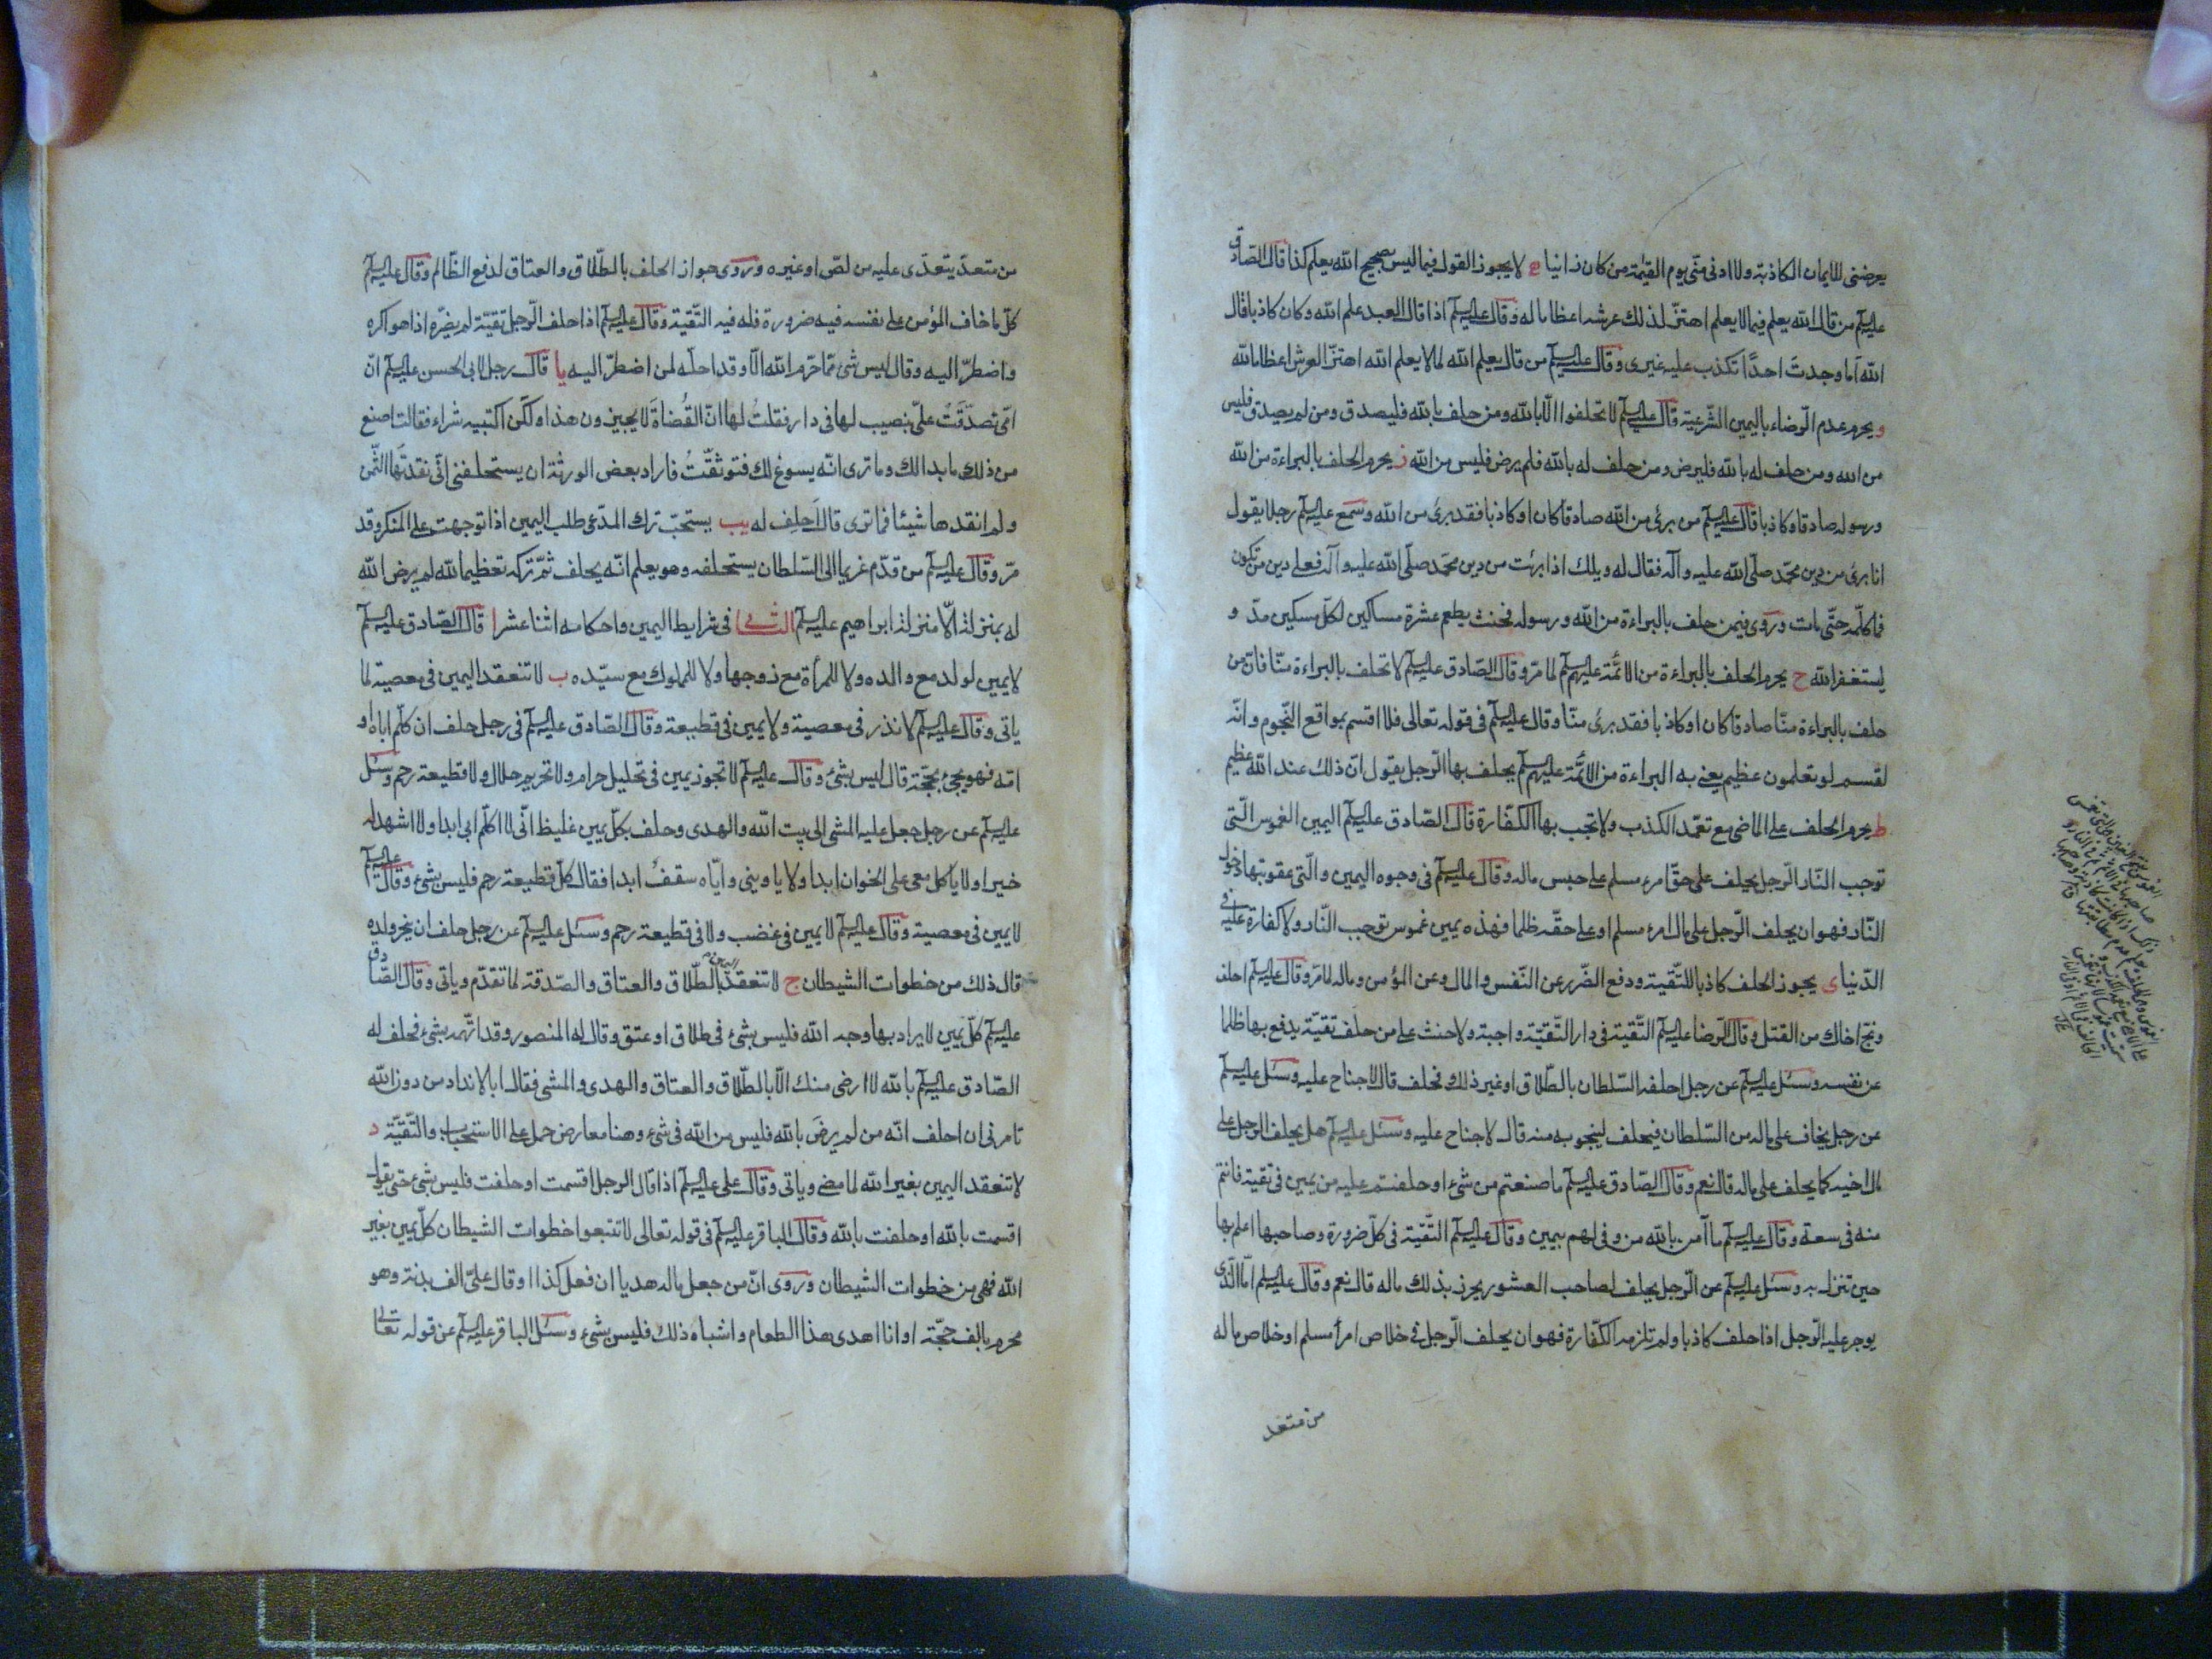 يعرضنى للايمان الكاذبة ولا ادنى منّى يوم القيٰمة من كان زانيا ه لا يجوز القول فيما ليس بصحيح الله يعلم كذا قال الصّادق
عليه السلم من قال الله يعلم فيما لا يعلم اهتزّ لذلك عرشه اعظاما له وقال عليه السلم اذا قال العبد علم الله وكان كاذبا قال
الله اَما وجدتَ احدًا تكذب عليه غيرى وقال عليه السلم من قال يعلم الله لما لا يعلم الله اهتزّ العرش اعظاما لله
و يحرم عدم الرّضاء باليمين الشّرعية قال عليه السلم لا تحلفوا الّا بالله ومن حلف بالله فليصدق ومن لم يصدق فليس
من الله ومن حلف له بالله فليرض ومن حلف له بالله فلم يرض فليس من الله ز يحرم الحلف بالبراءة من الله
ورسوله صادقا وكاذبا قال عليه السلم من برئ من الله صادقا كان او كاذبا فقد برئ من الله وسمع عليه السلم رجلا يقول
انا برئ من دين محمّد صلّى الله عليه وآله فقال له ويلك اذا برئت من دين محمّد صلّى الله عليه وآله فعلى دين من تكون
فما كلّمه حتّى مات وروى فيمن حلف بالبراءة من الله ورسوله فحنث يطعم عشرة مساكين لكلّ مسكين مدّ و
ليستغفر الله ح يحرم الحلف بالبراءة من الائمّة عليهم السلم لما مرّ وقال الصّادق عليه السلم لا تحلف بالبراءة منّا فانّ من
حلف بالبراءة منّا صادقا كان او كاذبا فقد برئ منّا وقال عليه السلم فى قوله تعالى فلا اقسم بمواقع النّجوم وانّه
لقسم لو تعلمون عظيم يعنى به البراءة من الائمّة عليهم السلم يحلف بها الرّجل يقول انّ ذلك عند الله عظيم
ط يحرم الحلف على الماضى مع تعمّد الكذب ولا تجب بها الكفّارة قال الصّادق عليه السلم اليمين الغموس الّتى
توجب النّار الرّجل يحلف على حقّ امرء مسلم على حبس ماله وقال عليه السلم فى وجوه اليمين والّتى عقوبتها دخول
النّار فهو ان يحلف الرّجل على مال امرء مسلم او على حقّه ظلما فهذه يمين غموس توجب النّار ولا كفارة عليه فى
الدّنيا ى يجوز الحلف كاذبا للتّقية ودفع الضّرر عن النّفس والمال وعن المؤمن وماله لما مرّ وقال عليه السلم احلف
ونجّ اخاك من القتل وقال الرّضا عليه السلم التّقية فى دار التّقيّة واجبة ولا حنث على من حلف تقيّة يدفع بها ظلما
عن نفسه وسئل عليه السلم عن رجل احلفه السّلطان بالطّلاق او غير ذلك فحلف قال لا جناح عليه وسئل عليه السلم
عن رجل يخاف على ماله من السّلطان فيحلف لينجو به منه قال لا جناح عليه وسئل عليه السلم هل يحلف الرجل على
مال اخيه كما يحلف على ماله قال نعم وقال الصّادق عليه السلم ما صنعتم من شئ او حلفتم عليه من يمين فى تقيّة فانتم
منه فى سعة وقال عليه السلم ما آمن بالله من وفى لهم بيمين وقال عليه السلم التّقيّة فى كلّ ضرورة وصاحبها اعلم بها
حين تنزل به وسئل عليه السلم عن الرّجل يحلف لصاحب العشور يحرز بذلك ماله قال نعم وقال عليه السلم امّا الّذى
يوجر عليه الرّجل اذا حلف كاذبا ولم تلزمه الكفّارة فهو ان يحلف الرّجل فى خلاص امرأ مسلم او خلاص ماله
من متعد
من متعدّ يتعدّى عليه من لصّ او غيره وروى جواز الحلف بالطّلاق والعتاق لدفع الظّالم وقال عليه السلم
كلّ ما خاف المؤمن على نفسه فيه ضرورة فله فيه التّقية وقال عليه السلم اذا حلف الرّجل تقيّة لم يضرّه اذا هو اكره
واضطرّ اليه وقال ليس شئ ممّا حرّم الله الّا وقد احلّه لمن اضطرّ اليه يا قال رجل لابى الحسن عليه السلم انّ
امّى تصدّقَتْ علىّ بنصيب لها فى دار فقلتُ لها انّ القُضاةَ لا يجيزون هذا ولكن اكتبيه شراء فقالت اصنع
من ذلك ما بدا لك وما ترى انّه يسوغ لك فتوثّقتُ فاراد بعض الورثة ان يستحلفنى انّى نقدتُها الثّمن
ولم انقدها شيئا فما ترى قال احلف له يب يستحبّ ترك المدّعى طلب اليمين اذا توجهت على المنكر وقد
مرّ وقال عليه السلم من قدّم غريما الى السّلطان يستحلفه وهو يعلم انّه يحلف ثمّ تركه تعظيما لله لم يرض الله
له بمنزلة الّا منزلة ابراهيم عليه السلم الثّانى فى شرايط اليمين واحكامه اثنا عشر ا قال الصّادق عليه السلم
لا يمين لولد مع والده ولا للمرأة مع زوجها ولا للمملوك مع سيّده ب لا تنعقد اليمين فى معصية لما
ياتى وقال عليه السلم لا نذر فى معصية ولا يمين فى قطيعة وقال الصّادق عليه السلم فى رجل حلف ان كلّم اباه او
امّه فهو يجئ بحجّة قال ليس بشئ وقال عليه السلم لا تجوز يمين فى تحليل حرام ولا تحريم حلال ولا قطيعة رحم وسئل
عليه السلم عن رجل جعل عليه المشى الى بيت الله والهدى وحلف بكلّ يمين غليظ انّى لا اكلّم ابى ابدا ولا اشهد له
خيرا ولا ياكل معى على الخوان ابدا ولا ياوينى وايّاه سقفٌ ابدا فقال كلّ قطيعة رحم فليس بشئ وقال عليه السلم
لا يمين فى معصية وقال عليه السلم لا يمين فى غضب ولا فى قطيعة رحم وسئل عليه السلم عن رجل حلف ان ينحر ولده
قال ذلك من خطوات الشيطان ج لا تنعقد اليمين بالطّلاق والعتاق والصّدقة لما تقدّم وياتى وقال الصّادق
عليه السلم كلّ يمين لا يراد بها وجه الله فليس بشئ فى طلاق او عتق وقال له المنصور وقد اتّهمه بشئ فحلف له
الصّادق عليه السلم بالله لا ارضى منك الّا بالطّلاق والعتاق والهدى والمشى فقال ابالانداد من دون الله
تامرنى ان احلف انّه من لم يرضَ بالله فليس من الله فى شئ وهنا معارض حمل على الاستحباب والتّقيّة د
لا تنعقد اليمين بغير الله لما مضى وياتى وقال على عليه السلم اذا قال الرجل اقسمت او حلفت فليس بشئ حتى يقول
اقسمت بالله او حلفت بالله وقال الباقر عليه السلم فى قوله تعالى لا تتبعوا خطوات الشيطان كلّ يمين بغير
الله فهى من خطوات الشيطان وروى انّ من جعل ماله هديا ان فعل كذا او قال علىّ الف بدنة وهو
محرم بالف حجّة او انا اهدى هذا الطعام واشباه ذلك فليس بشئ وسئل الباقر عليه السلم عن قوله تعالى